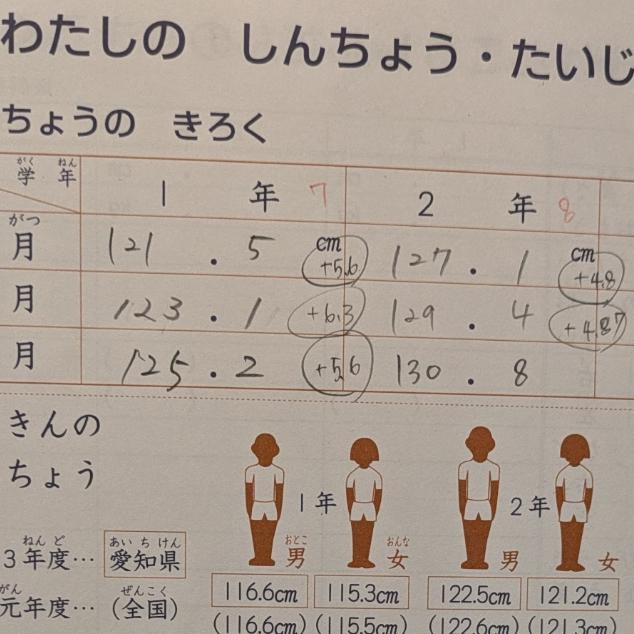 わたしの しんちょう・たいじ
ちょうの きろく
がく ねん
学 年 1 年 7 2 年 8
がつ
月 121 . 5 cm +5.6 127 . 1 cm +4.8
月 123 . 1 +6.3 129 . 4
月 125 . 2 +5.6 130 . 8
きんの
ちょう
1年 2年
ねんど あいちけん おとこ おんな
3年度… 愛知県 男 女 男 女
116.6cm 115.3cm 122.5cm 121.2cm
がん ぜんこく
元年度… (全国) (116.6cm) (115.5cm) (122.6cm) (121.3cm)